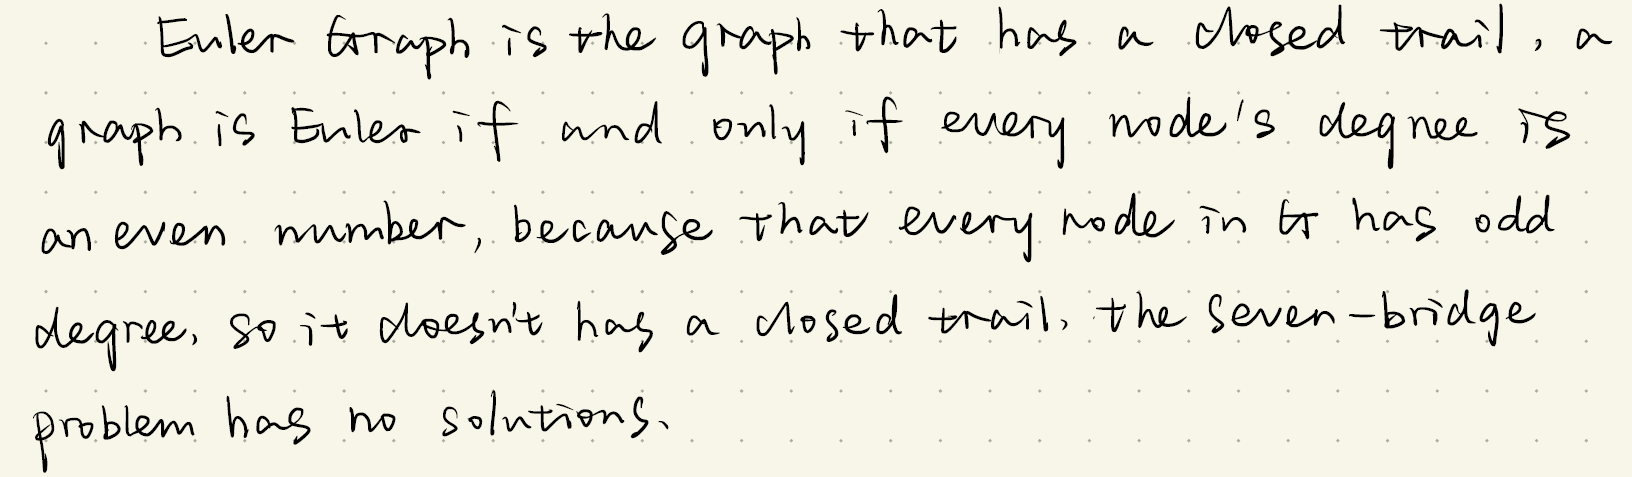 Euler Graph is the graph that has a closed trail, a
graph is Euler if and only if every node's degree is
an even number, because that every node in G has odd
degree, so it doesn't has a closed trail, the seven-bridge
problem has no solutions.